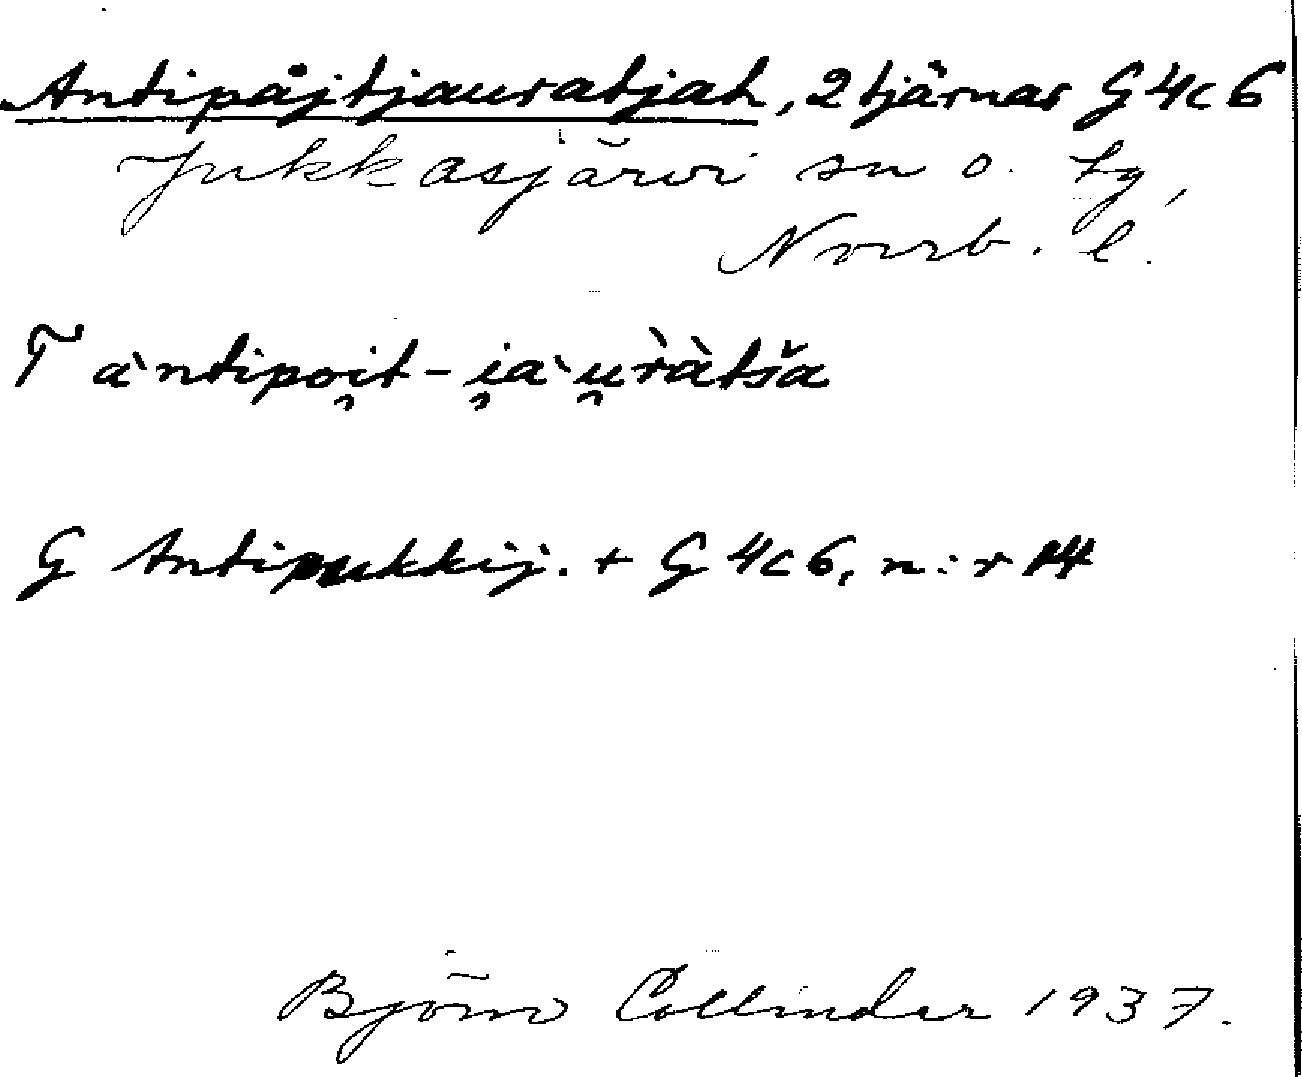 Antipåjtjauratjah, 2 tjärnar G 4c 6
Jukkasjärvi sn o. tg,
Norrb. l.
T àntipoi̯t-i̯àu̯ràtša
G Antipukkij. + G 4c 6, n:r 14
Björn Collinder 1937.